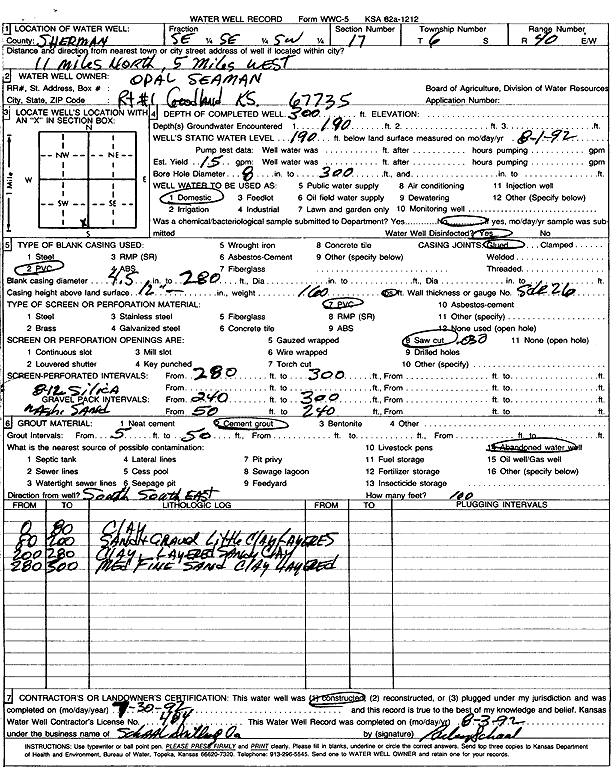 WATER WELL RECORD Form WWC-5 KSA 82a-1212
1 LOCATION OF WATER WELL: Fraction Section Number Township Number Range Number
County: SHERMAN SE ¼ SE ¼ SW ¼ 17 T 6 S R 40 E/W
Distance and direction from nearest town or city street address of well if located within city?
11 MILES NORTH, 5 MILES WEST
2 WATER WELL OWNER: OPAL SEAMAN
RR#, St. Address, Box # : Board of Agriculture, Division of Water Resources
City, State, ZIP Code : Rt #1 Goodland KS. 67735 Application Number:
3 LOCATE WELL'S LOCATION WITH AN "X" IN SECTION BOX:
N
NW NE
W E
SW SE
X
S
1 Mile
4 DEPTH OF COMPLETED WELL 300 ft. ELEVATION:
Depth(s) Groundwater Encountered 1. 190 ft. 2. ft. 3. ft.
WELL'S STATIC WATER LEVEL 190 ft. below land surface measured on mo/day/yr 8-1-92
Pump test data: Well water was ft. after hours pumping gpm
Est. Yield 15 gpm: Well water was ft. after hours pumping gpm
Bore Hole Diameter 8 in. to 300 ft., and in. to ft.
WELL WATER TO BE USED AS: 5 Public water supply 8 Air conditioning 11 Injection well
1 Domestic 3 Feedlot 6 Oil field water supply 9 Dewatering 12 Other (Specify below)
2 Irrigation 4 Industrial 7 Lawn and garden only 10 Monitoring well
Was a chemical/bacteriological sample submitted to Department? Yes No If yes, mo/day/yr sample was submitted
Water Well Disinfected? Yes No
5 TYPE OF BLANK CASING USED: 5 Wrought iron 8 Concrete tile CASING JOINTS: Glued Clamped
1 Steel 3 RMP (SR) 6 Asbestos-Cement 9 Other (specify below) Welded
2 PVC 4 ABS 7 Fiberglass Threaded
Blank casing diameter 4.5 in. to 280 ft., Dia in. to ft., Dia in. to ft.
Casing height above land surface 12 in., weight 160 lbs./ft. Wall thickness or gauge No. Sdr 26
TYPE OF SCREEN OR PERFORATION MATERIAL: 7 PVC 10 Asbestos-cement
1 Steel 3 Stainless steel 5 Fiberglass 8 RMP (SR) 11 Other (specify)
2 Brass 4 Galvanized steel 6 Concrete tile 9 ABS 12 None used (open hole)
SCREEN OR PERFORATION OPENINGS ARE: 5 Gauzed wrapped 8 Saw cut .030 11 None (open hole)
1 Continuous slot 3 Mill slot 6 Wire wrapped 9 Drilled holes
2 Louvered shutter 4 Key punched 7 Torch cut 10 Other (specify)
SCREEN-PERFORATED INTERVALS: From 280 ft. to 300 ft., From ft. to ft.
8-12 Silica From ft. to ft., From ft. to ft.
GRAVEL PACK INTERVALS: From 240 ft. to 300 ft., From ft. to ft.
Mash. Sand From 50 ft. to 240 ft., From ft. to ft.
6 GROUT MATERIAL: 1 Neat cement 2 Cement grout 3 Bentonite 4 Other
Grout Intervals: From 5 ft. to 50 ft., From ft. to ft., From ft. to ft.
What is the nearest source of possible contamination: 10 Livestock pens 14 Abandoned water well
1 Septic tank 4 Lateral lines 7 Pit privy 11 Fuel storage 15 Oil well/Gas well
2 Sewer lines 5 Cess pool 8 Sewage lagoon 12 Fertilizer storage 16 Other (specify below)
3 Watertight sewer lines 6 Seepage pit 9 Feedyard 13 Insecticide storage
Direction from well? South South EAST How many feet? 100
FROM TO LITHOLOGIC LOG FROM TO PLUGGING INTERVALS
0 80 CLAY
80 200 SAND + GRAVEL LITTLE CLAY LAYERES
200 280 CLAY LAYERED SANDY CLAY
280 300 MED FINE SAND CLAY LAYERED
7 CONTRACTOR'S OR LANDOWNER'S CERTIFICATION: This water well was (1) constructed, (2) reconstructed, or (3) plugged under my jurisdiction and was
completed on (mo/day/year) 7-30-92 and this record is true to the best of my knowledge and belief. Kansas
Water Well Contractor's License No. 464 This Water Well Record was completed on (mo/day/yr) 8-3-92
under the business name of Schaal Drilling Co by (signature) Schaal
INSTRUCTIONS: Use typewriter or ball point pen. PLEASE PRESS FIRMLY and PRINT clearly. Please fill in blanks, underline or circle the correct answers. Send top three copies to Kansas Department
of Health and Environment, Bureau of Water, Topeka, Kansas 66620-7320. Telephone: 913-296-5545. Send one to WATER WELL OWNER and retain one for your records.